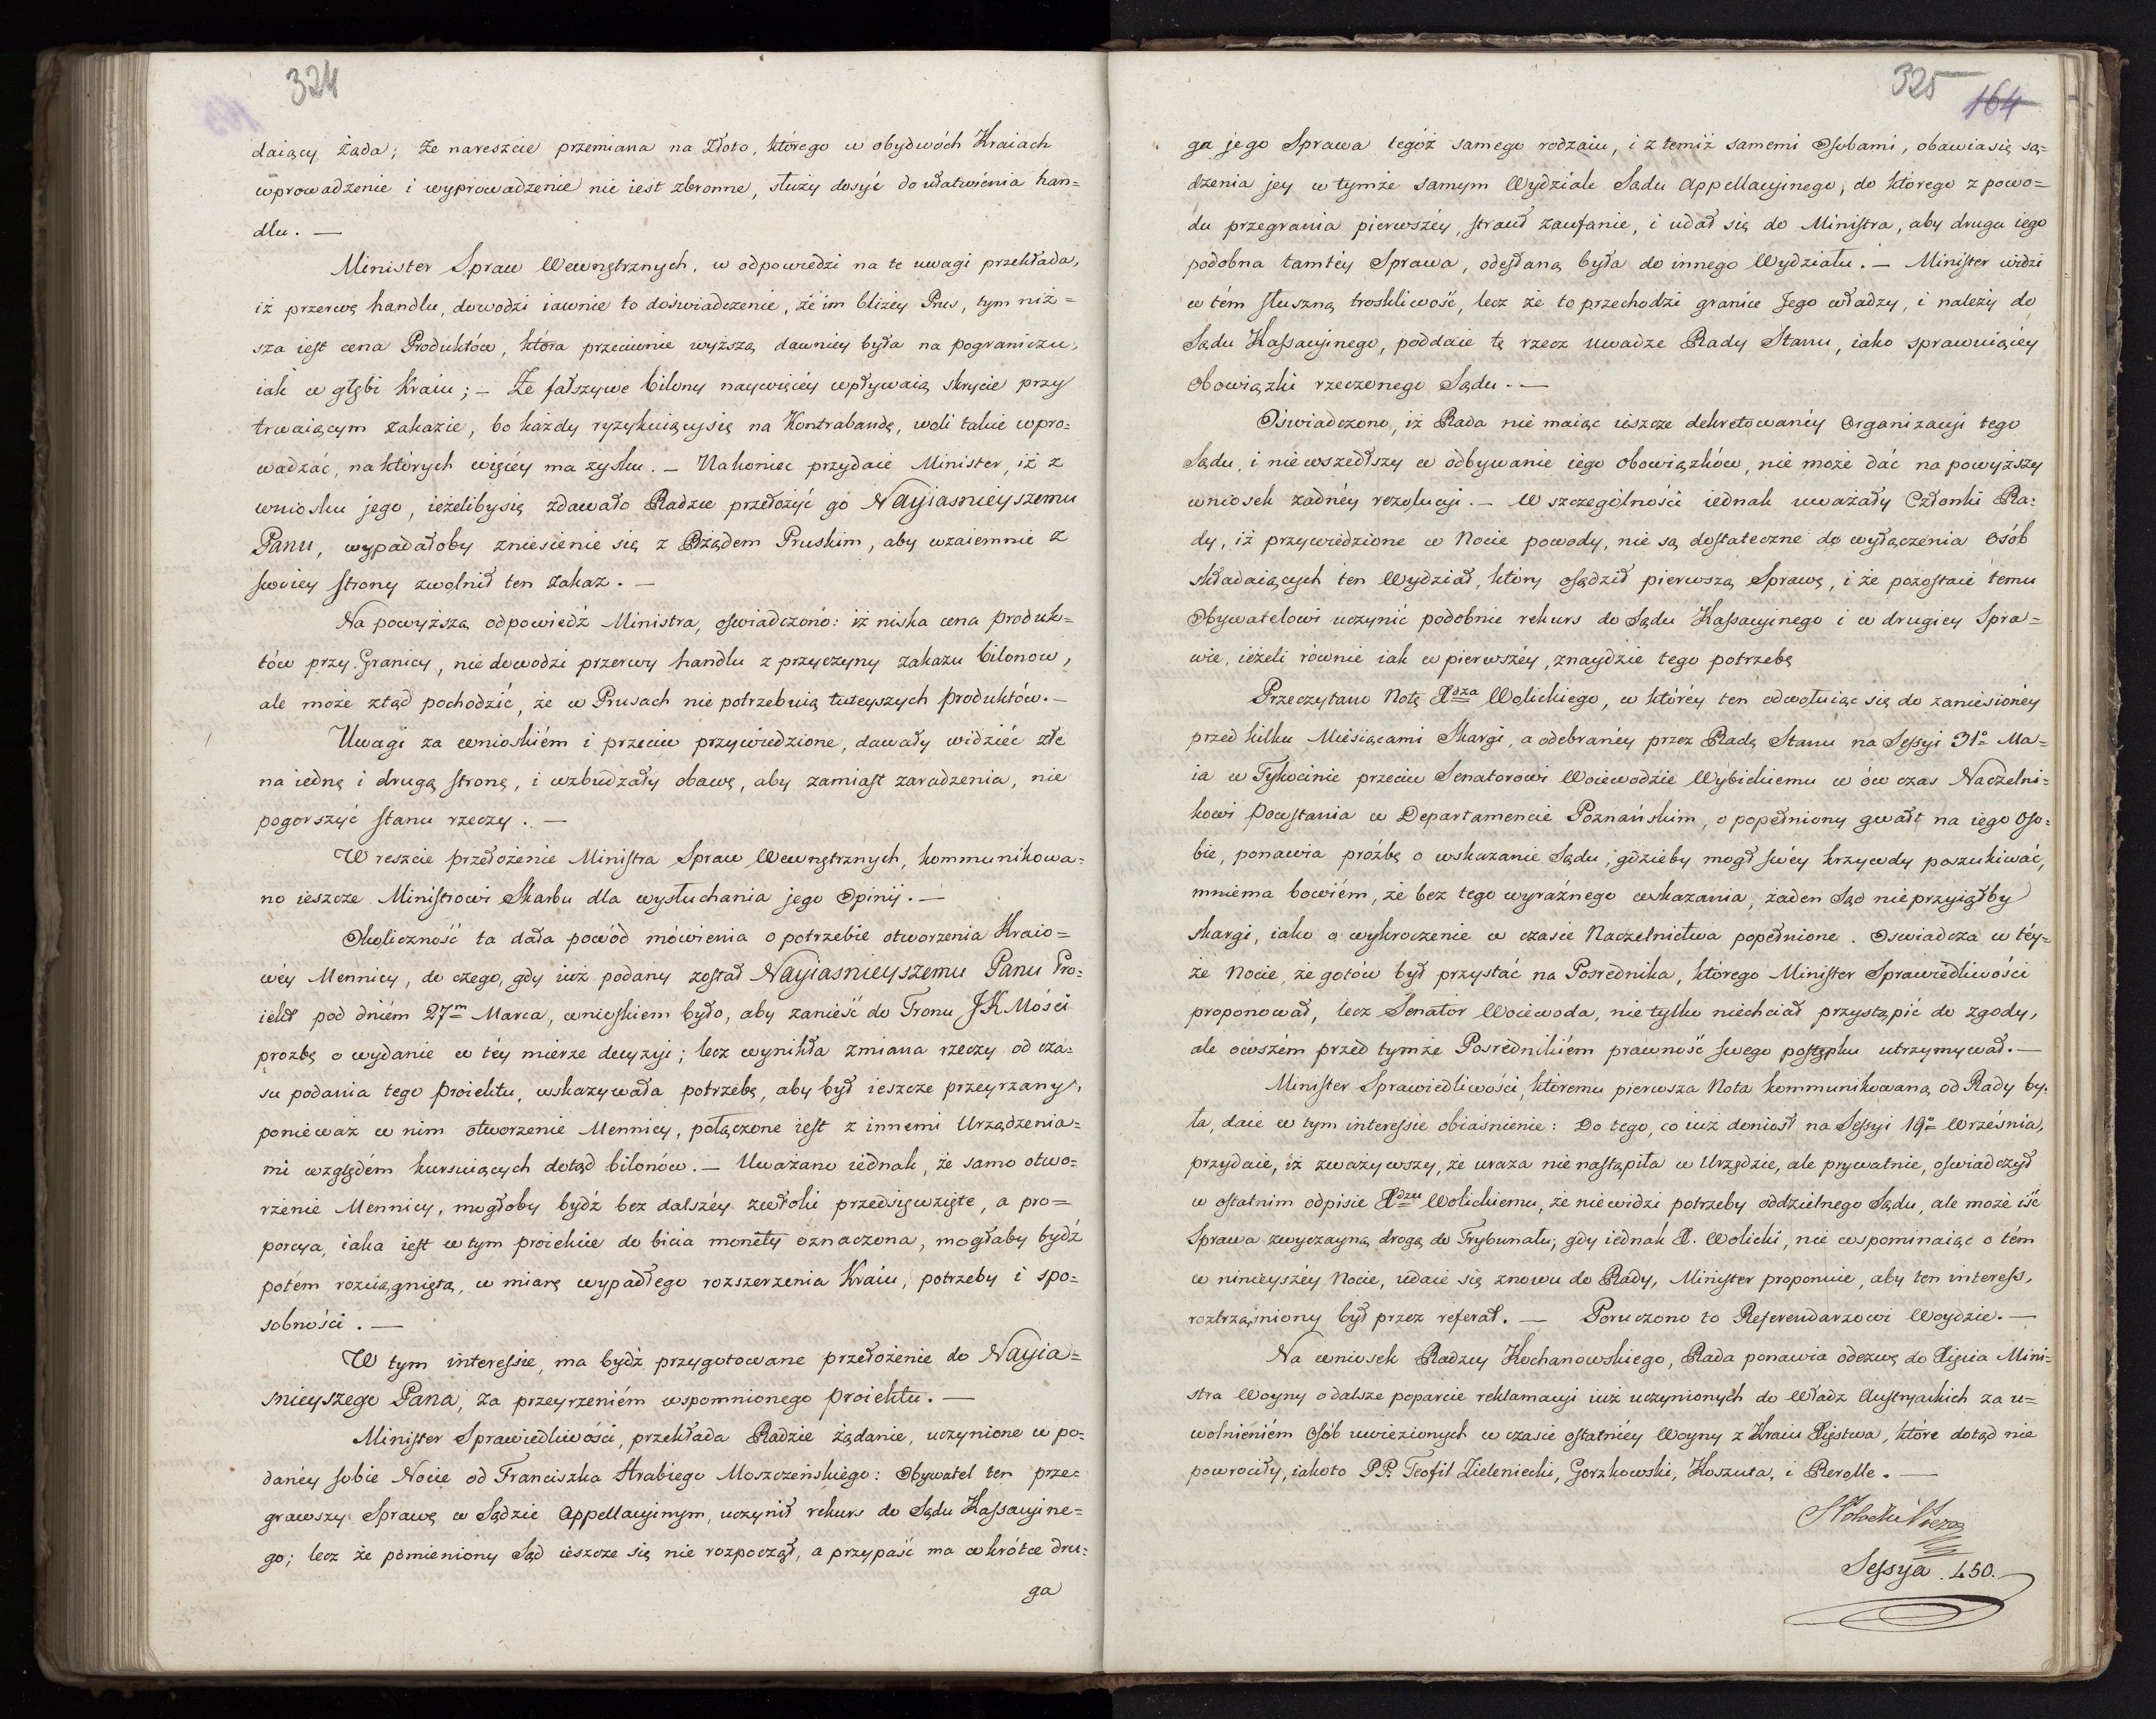 324
daiący żąda; że nareszcie przemiana na złoto, którego w obydwóch Kraiach
wprowadzenie i wyprowadzenie nie iest zbronne, służy dosyć do ułatwienia han=
dlu. —
Minister Spraw Wewnętrznych, w odpowiedzi na te uwagi przekłada,
iż przerwę handlu, dowodzi iawnie to doświadczenie, że im bliżey Prus, tym niż=
sza iest cena Produktów, która przeciwnie wyższą dawniey była na pograniczu,
iak w głębi Kraiu; — Że fałszywe bilony naywięcéy wpływaią skrycie przy
trwaiącym zakazie, bo każdy ryzykuiący się na Kontrabandę, woli takie wpro=
wadzać, na których więcéy ma zysku. — Nakoniec przydaie Minister, iż z
wniosku jego, ieżeliby się zdawało Radzie przełożyć go Nayiasnieyszemu
Panu, wypadałoby zniesienie się z Rządem Pruskim, aby wzaiemnie z
swoiey strony zwolnił ten zakaz. —
Na powyższą odpowiedź Ministra, oświadczono: iż niska cena produk=
tów przy Granicy, nie dowodzi przerwy handlu z przyczyny zakazu bilonow,
ale może ztąd pochodzić, że w Prusach nie potrzebuią tuteyszych produktów. —
Uwagi za wnioskiém i przeciw przywiedzione, dawały widzieć złe
na iedną i drugą stronę, i wzbudzały obawę, aby zamiast zaradzenia, nie
pogorszyć stanu rzeczy. —
W reszcie przełożenie Ministra Spraw Wewnętrznych, kommunikowa=
no ieszcze Ministrowi Skarbu dla wysłuchania jego Opinij. —
Okoliczność ta dała powód mówienia o potrzebie otworzenia Kraio=
wéy Mennicy, do czego, gdy iuż podany został Nayiasnieyszemu Panu Pro=
iekt pod dniém 27m Marca, wnioskiem było, aby zanieść do Tronu JKMości
prozbę o wydanie w téy mierze decyzyi; lecz wynikła zmiana rzeczy od cza=
su podania tego proiektu, wskazywała potrzebę, aby był ieszcze przeyrzany,
ponieważ w nim otworzenie Mennicy, połączone iest z innemi Urządzenia=
mi względém kursuiących dotąd bilonów. — Uważano iednak, że samo otwo=
rzenie Mennicy, mogłoby bydź bez dalszéy zwłoki przedsięwzięte, a pro=
porcya, iaka iest w tym proiekcie do bicia monéty oznaczona, mogłaby bydź
potém rozciągnięta, w miarę wypadłego rozszerzenia Kraiu, potrzeby i spo=
sobności. —
W tym interessie, ma bydź przygotowane przełożenie do Nayia=
snieyszego Pana, za przeyrzeniém wspomnionego proiektu. —
Minister Sprawiedliwości, przekłada Radzie żądanie, uczynione w po=
danéy sobie Nocie od Franciszka Hrabiego Moszczeńskiego: Obywatel ten prze=
grawszy Sprawę w Sądzie Appellacyinym, uczynił rekurs do Sądu Kassacyine=
go; lecz że pomieniony Sąd ieszcze się nie rozpoczął, a przypaść ma wkrótce dru=
ga
325
164
ga jego Sprawa tegóż samego rodzaiu, i z temiż samemi Osobami, obawia się są=
dzenia jey w tymże samym Wydziale Sądu Appellacyinego, do którego z powo=
du przegrania pierwszéy, stracił zaufanie, i udał się do Ministra, aby druga iego
podobna tamtéy Sprawa, odesłaną była do innego Wydziału. — Minister widzi
w tém słuszną troskliwość, lecz że to przechodzi granice Jego władzy, i należy do
Sądu Kassacyinego, poddaie tę rzecz uwadze Rady Stanu, iako sprawuiącéy
Obowiązki rzeczonego Sądu. —
Oświadczono, iż Rada nie maiąc ieszcze dekretowanéy Organizacyi tego
Sądu, i nie wszedłszy w odbywanie iego Obowiązków, nie może dać na powyższy
wniosek żadnéy rezolucyi. — W szczególności iednak uważały Członki Ra=
dy, iż przywiedzione w Nocie powody, nie są dostateczne do wyłączenia Osób
składaiących ten Wydział, który osądził pierwszą Sprawę, i że pozostaie temu
Obywatelowi uczynić podobnie rekurs do Sądu Kassacyinego i w drugiey Spra=
wie, ieżeli równie iak w pierwszéy, znaydzie tego potrzebę
Przeczytano Notę Xdza Wolickiego, w któréy ten odwołuiąc się do zaniesionéy
przed kilku Miesiącami Skargi, a odebranéy przez Radę Stanu na Sessyi 31o Ma=
ia w Tykocinie przeciw Senatorowi Woiewodzie Wybickiemu w ów czas Naczelni=
kowi Powstania w Departamencie Poznańskim, o popełniony gwałt na iego Oso=
bie, ponawia prożbę o wskazanie Sądu, gdzieby mogł swéy krzywdy poszukiwać,
mniema bowiém, że bez tego wyraźnego wskazania, żaden Sąd nie przyiąłby
skargi, iako o wykroczenie w czasie Naczelnictwa popełnione. Oświadcza w téy=
że Nocie, że gotów był przystać na Posrednika, którego Minister Sprawiedliwości
proponował, lecz Senator Woiewoda, nie tylko niechciał przystąpić do zgody,
ale owszém przed tymże Posrednikiém prawność swego postępku utrzymywał. —
Minister Sprawiedliwości, któremu pierwsza Nota kommunikowaną od Rady by=
ła, daie w tym interessie obiaśnienie: Do tego, co iuż doniosł na Sessyi 19o Września,
przydaie, iż zważywszy, że uraza nie nastąpiła w Urzędzie, ale prywatnie, oświadczył
w ostatnim odpisie Xdzu Wolickiemu, że nie widzi potrzeby oddzielnego Sądu, ale może iść
Sprawa zwyczayną drogą do Trybunału; gdy iednak X. Wolicki, nie wspominaiąc o tém
w ninieyszéy Nocie, udaie się znowu do Rady, Minister proponuie, aby ten interess,
roztrząśniony był przez referat. — Poruczono to Referendarzowi Woydzie. —
Na wniosek Radzcy Kochanowskiego, Rada ponawia odezwę do Xięcia Mini=
stra Woyny o dalsze poparcie reklamacyi iuż uczynionych do Władz Austryackich za u=
wolnieniém Osób uwiezionych w czasie ostatniéy Woyny z Kraiu Xięstwa, które dotąd nie
powrociły, iakoto PP. Teofil Zieleniecki, Gorzkowski, Koszuta, i Rerolle. —
Sessya 450.